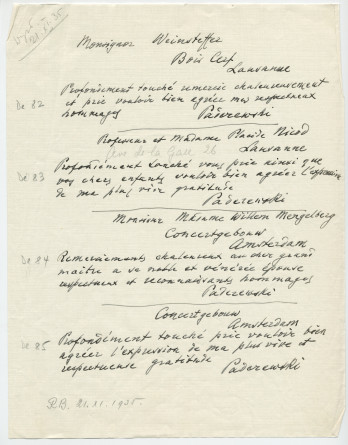 Monsignor Weinsteffer
Bois Cerf
Lausanne
De 82 Profondément touché remercie chaleureusement
et prie vouloir bien agréer mes respectueux
hommages Paderewski
Professeur et Madame Placide Nicod
Lausanne
De 83 Profondément touché vous prie ainsi que
vos chers enfants vouloir bien agréer l'expression
de ma plus vive gratitude
Paderewski
Monsieur Madame Willem Mengelberg
Concertgebouw
Amsterdam
De 84 Remerciements chaleureux au cher grand
maître a sa noble et vénérée épouse
respectueux et reconnaissants hommages
Paderewski
Concertgebouw
Amsterdam
De 85 Profondément touché prie vouloir bien
agréer l'expression de ma plus vive et
respectueuse gratitude
Paderewski
R.B. 21.XI.1935